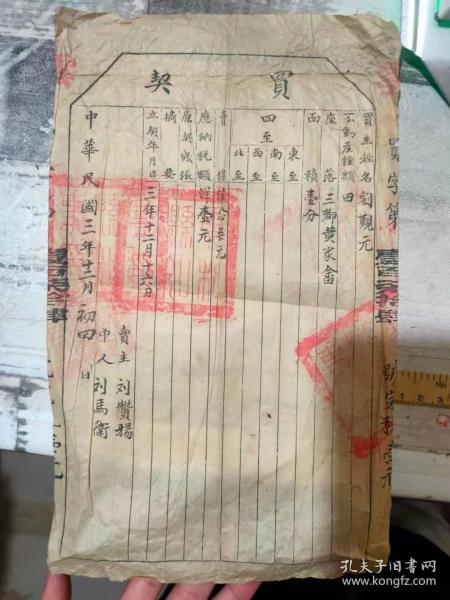 買契
買主姓名劉觀元
不動產種類田
座落三都黄家畲
面積壹分
四至
東至
南至
西至
北至
賣價
應納稅額洋壹元
原契幾張
摘要
立契年月日三年十二月十六日
賣主刘贊揚
中人刘馬衛
中華民國三年十二月初四日
買字第
號定税壹元
孔夫子旧书网
www.kongfz.com